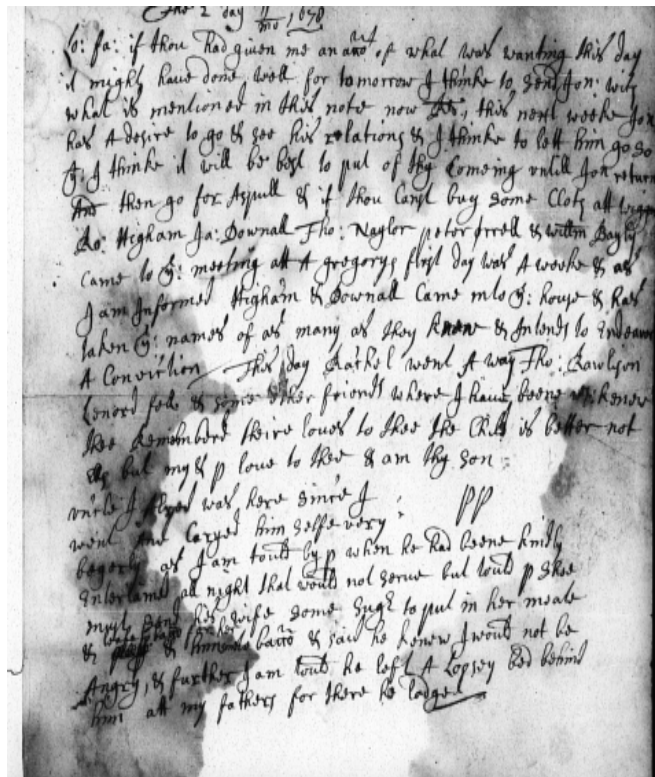 The 2 day 11 mo, 1678
Lo: fa: if thou had given me an acot of what was wanting this day
it might have done well for tomorrow I thinke to send Jon: with
what is mentioned in this note now this next weeke Jon
has A desire to go & see his relations & I thinke to lett him go so
yt I thinke it will be best to put of thy Comeing untill Jon return
And then go for Aspull & if thou Canst buy some Cloth att wigan
Ro: Higham Ja: Downall Tho: Naylor peter orrell & willm Bayly
Came to ye: meeting att A gregorys first day was A weeke & as
I am Informed Higham & Downall Came into ye: house & has
taken ye: names of as many as they knew & Intends to Endeavor
A Conviction This day Rachel went A way Tho: Rawlyson
Lenord fell & some other friends where I have beene wch knew
thee Rememberd theire loves to thee the Child is better not
but my & p love to thee & am thy son
PP
uncle J was here since I
went And Caryed him selfe very
bagerly as I am tould by p when he had beene kindly
Entertained all night that would not serve but tould p shee
must send his wife some Suger to put in her meate
& & himselfe bacco & said he knew I would not be
Angry, & further I am tould he left A Lopsey bed behind
him att my fathers for there he lodged